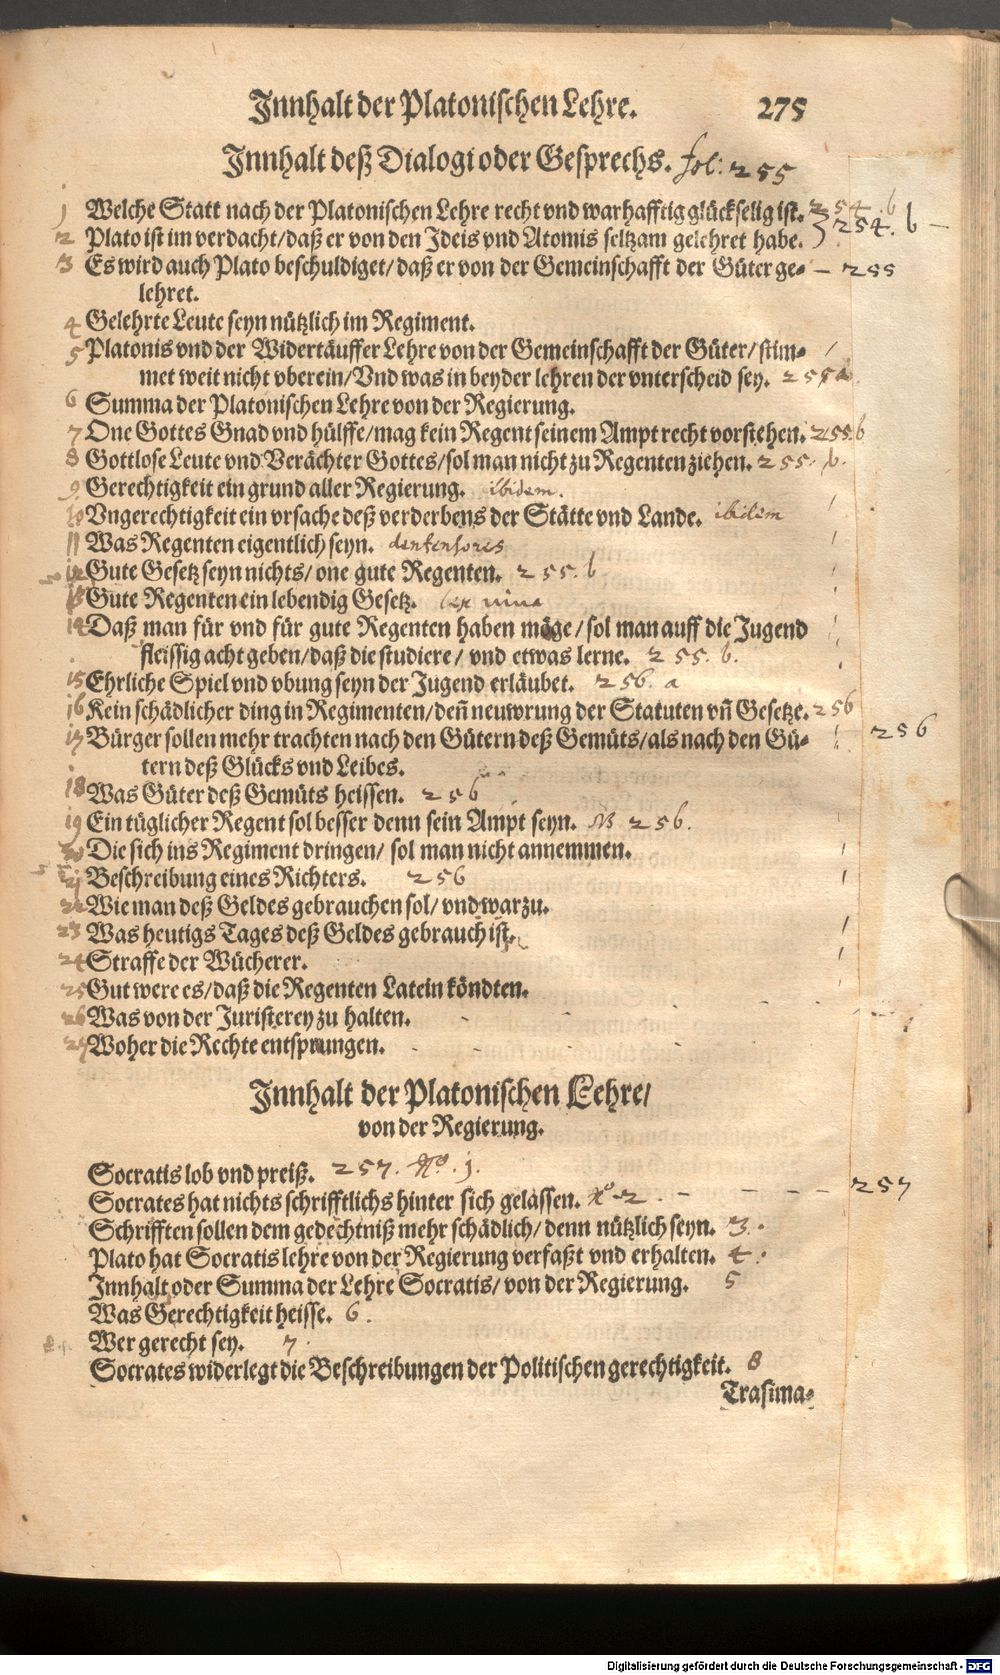 Innhalt der Platonischen Lehre. 275
Innhalt deß Dialogi oder Gesprechs. fol: 255
1 Welche Statt nach der Platonischen Lehre recht vnd warhafftig glückselig ist. 254. b
2 Plato ist im verdacht/ daß er von den Ideis vnd Atomis seltzam gelehret habe. } 254. b –
3 Es wird auch Plato beschuldiget/ daß er von der Gemeinschafft der Güter ge- – 255
lehret.
4 Gelehrte Leute seyn nützlich im Regiment.
5 Platonis vnd der Widertäuffer Lehre von der Gemeinschafft der Güter/ stim-
met weit nicht vberein/ Vnd was in beyder lehren der vnterscheid sey. 255 a
6 Summa der Platonischen Lehre von der Regierung.
7 One Gottes Gnad vnd hülffe/ mag kein Regent seinem Ampt recht vorstehen. 255 b
8 Gottlose Leute vnd Verächter Gottes/ sol man nicht zu Regenten ziehen. 255. b.
9 Gerechtigkeit ein grund aller Regierung. ibidem.
10 Vngerechtigkeit ein vrsache deß verderbens der Stätte vnd Lande. ibidem
11 Was Regenten eigentlich seyn.
12 Gute Gesetz seyn nichts/ one gute Regenten. 255. b
13 Gute Regenten ein lebendig Gesetz. lex viva
14 Daß man für vnd für gute Regenten haben möge/ sol man auff die Jugend
fleissig acht geben/ daß die studiere/ vnd etwas lerne. 255. b.
15 Ehrliche Spiel vnd vbung seyn der Jugend erläubet. 256. a
16 Kein schädlicher ding in Regimenten/ deñ neuwrung der Statuten vñ Gesetze. 256
17 Bürger sollen mehr trachten nach den Gütern deß Gemüts/ als nach den Gü- 256
tern deß Glücks vnd Leibes.
18 Was Güter deß Gemüts heissen. 256
19 Ein tüglicher Regent sol besser denn sein Ampt seyn. 256.
20 Die sich ins Regiment dringen/ sol man nicht annemmen.
21 Beschreibung eines Richters. 256
22 Wie man deß Geldes gebrauchen sol/ vnd warzu.
23 Was heutigs Tages deß Geldes gebrauch ist.
24 Straffe der Wücherer.
25 Gut were es/ daß die Regenten Latein köndten.
26 Was von der Juristerey zu halten.
27 Woher die Rechte entsprungen.
Innhalt der Platonischen Lehre/
von der Regierung.
Socratis lob vnd preiß. 257. No. 1.
Socrates hat nichts schrifftlichs hinter sich gelassen. No 2. – – – – 257
Schrifften sollen dem gedechtniß mehr schädlich/ denn nützlich seyn. 3.
Plato hat Socratis lehre von der Regierung verfaßt vnd erhalten. 4.
Innhalt oder Summa der Lehre Socratis/ von der Regierung. 5
Was Gerechtigkeit heisse. 6.
Wer gerecht sey. 7.
Socrates widerlegt die Beschreibungen der Politischen gerechtigkeit. 8
Trasima-
Digitalisierung gefördert durch die Deutsche Forschungsgemeinschaft - DFG